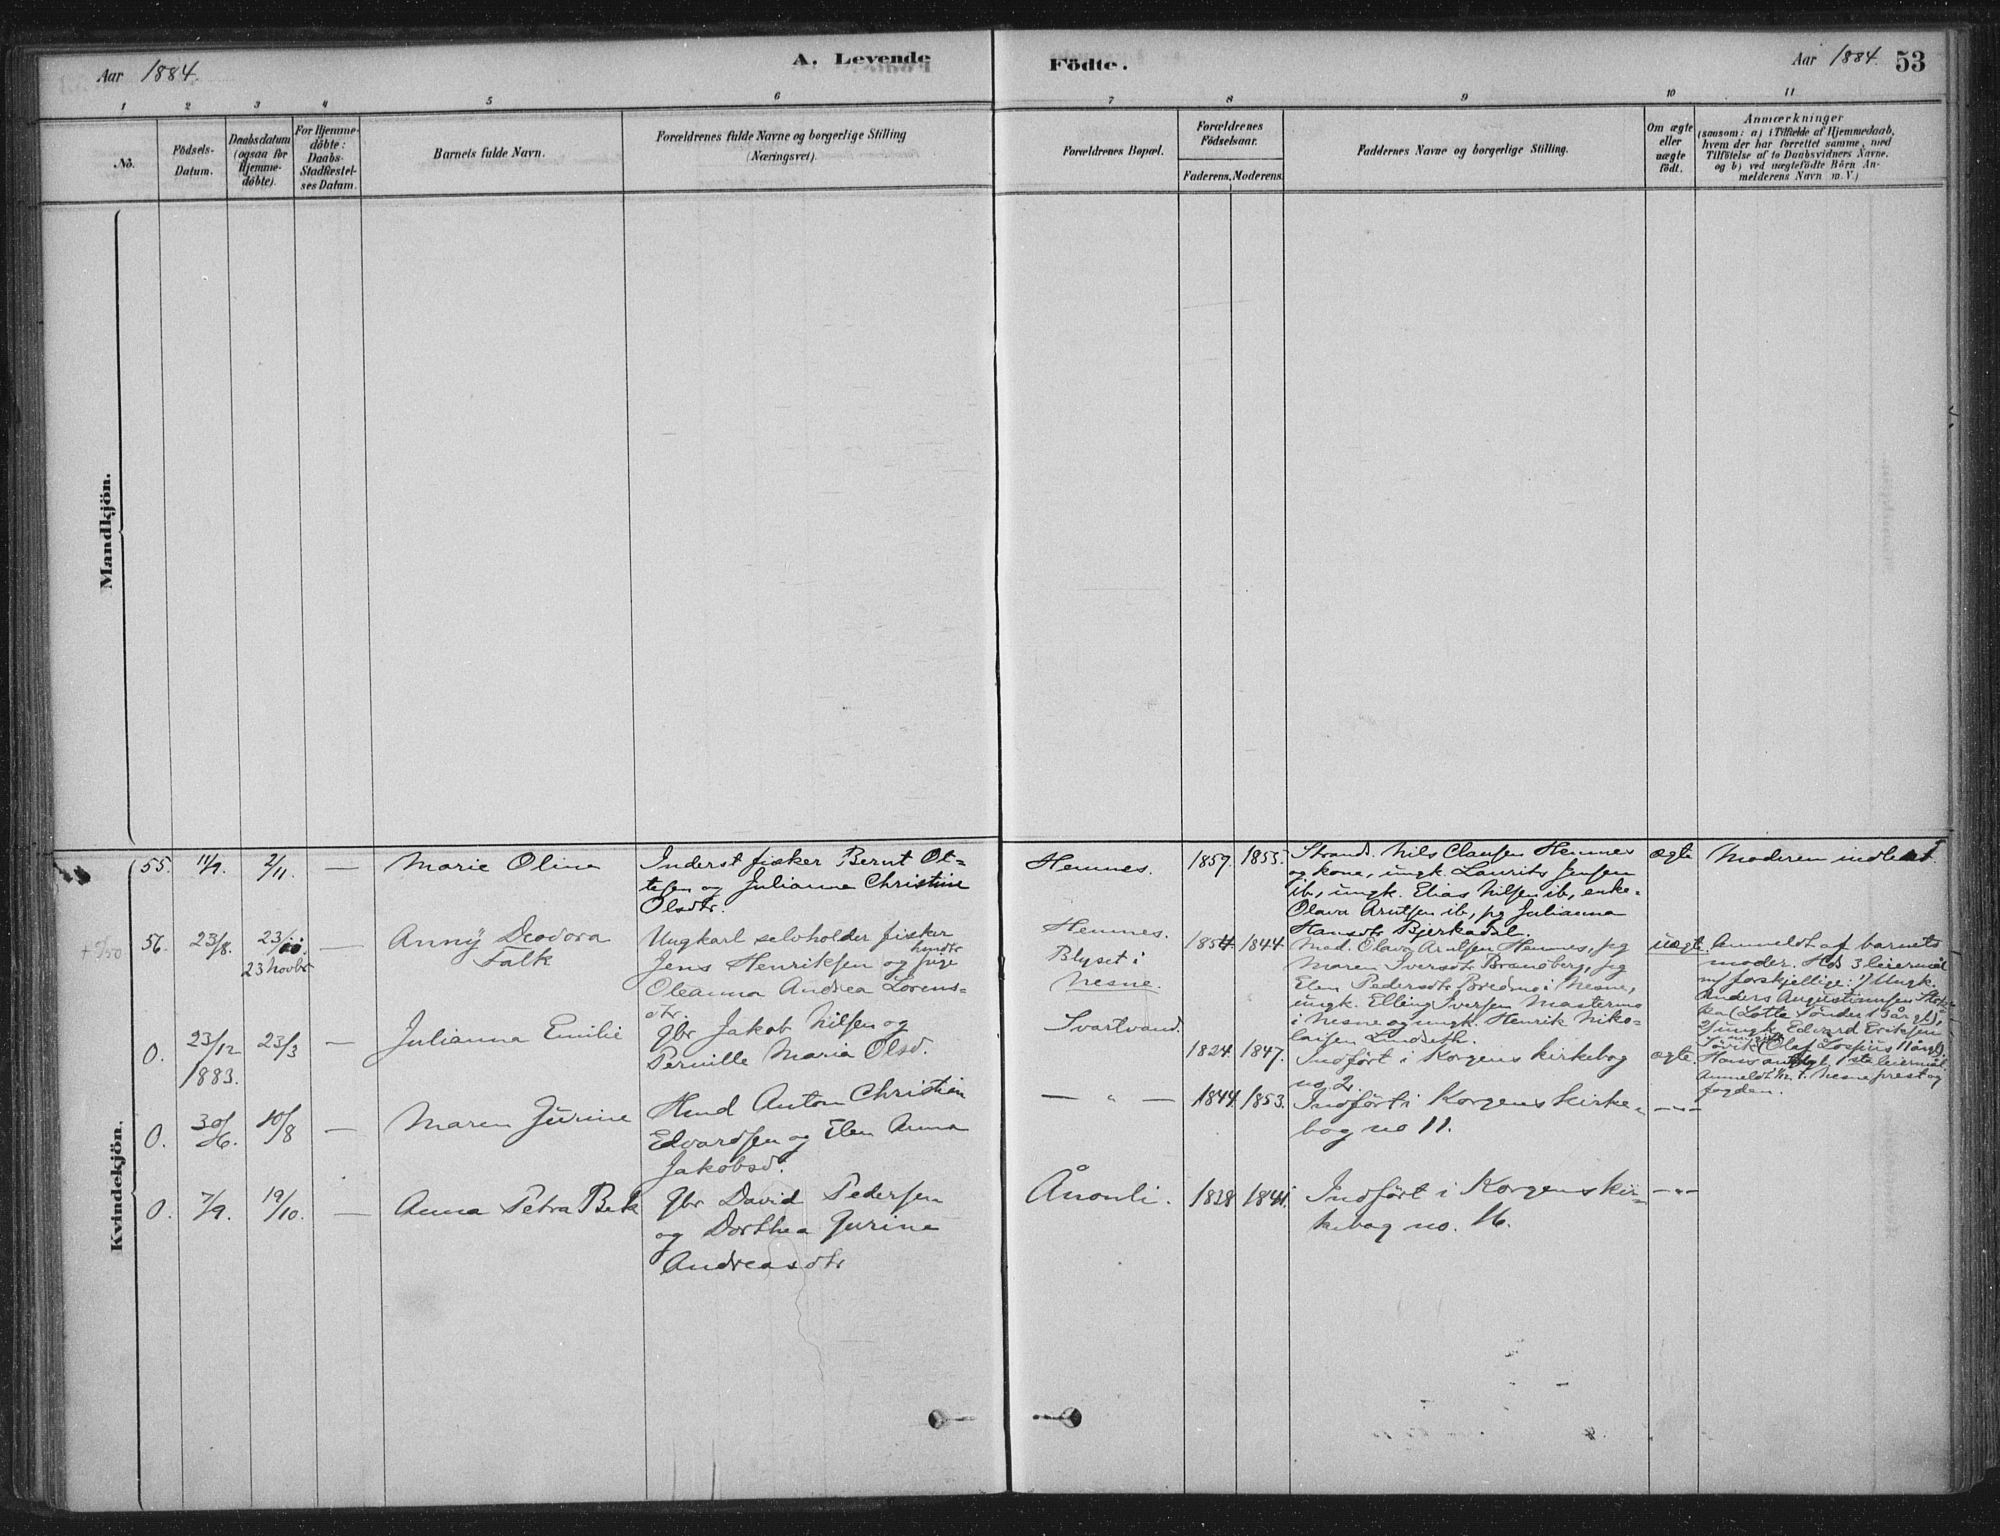 Aar 1884. A. Levende Födte. Aar 1884. 53
1 2 3 4 5 6 7 8 9 10 11
No.
Födsels-
Datum.
Daabsdatum
(ogsaa for
Hjemme-
döbte).
For Hjemme-
döbte:
Daabs-
Stadfæstel-
ses Datum.
Barnets fulde Navn.
Forældrenes fulde Navne og borgerlige Stilling
(Næringsvei).
Forældrenes Bopæl.
Forældrenes
Födselsaar.
Faderens. Moderens.
Faddernes Navne og borgerlige Stilling.
Om ægte
eller
uægte
födt.
Anmærkninger
(saasom: a) i Tilfælde af Hjemmedaab,
hvem der har forrettet samme, med
Tilföielse af to Daabsvidners Navne.
og b) ved uægtefödte Börn An-
melderens Navn m. V.)
Mandkjön.
Kvindekjön.
55. 11/9. 2/11. — Marie Olina
Inderst fisker Bernt Ot-
tesen og Julianna Christine
Olsdtr.
Hemnes.
1857. 1855.
Strands. Nils Clausen Hemnes
og kone, ungk. Laurits Jensen
ib., ungk. Elias Nilsen ib, enke
Olava Arntsen ib, pg Julianna
Hansdtr Bjerkadal.
ægte
Moderen indledt.
56. 23/8. 23/
23 Novbr
—
Anny Deodora
Falk
Ungkarl selvholder fisker
Jens Henriksen og pige
Oleanna Andrea Lorens-
dtr.
Hemnes.
Blyset i
Nesne.
1854. 1844
Mad. Olava Arntsen Hemnes, pg
Maren Iversdtr Brandberg, pg
Elen Pedersdtr Bredmo i Nesne,
ungk. Elling Iversen Mastermo
i Nesne og ungk. Henrik Niko-
laisen Lindseth.
uægte
Anmeldt af barnets
moder. Hds 3 leiermål
m/ forskjellige: 1/ Ungk.
Anders Augustinusen
2/ ungk Edvard Eriksen
Anmeldt t. Nesne prest og
fogden.
0. 23/12
1883.
23/3 —
Julianna Emilie
Gbr Jakob Nilsen og
Pernille Maria Olsd.
Svartvand.
1824. 1847.
Indført i Korgens kirkebog
no 2.
ægte
0. 30/6. 10/8 —
Maren Jurine
Hmd Anton Christian
Edvardsen og Elen Anna
Jakobsd.
— " —
1844. 1853.
Indført i Korgens kirke-
bog no 11.
— " —
0. 7/9. 19/10. —
Anna Petra Bek
Gbr David Pedersen
og Dorthea Jurine
Andreasdtr
Ånonli.
1828 1841.
Indført i Korgens kir-
kebog no. 16.
— " —